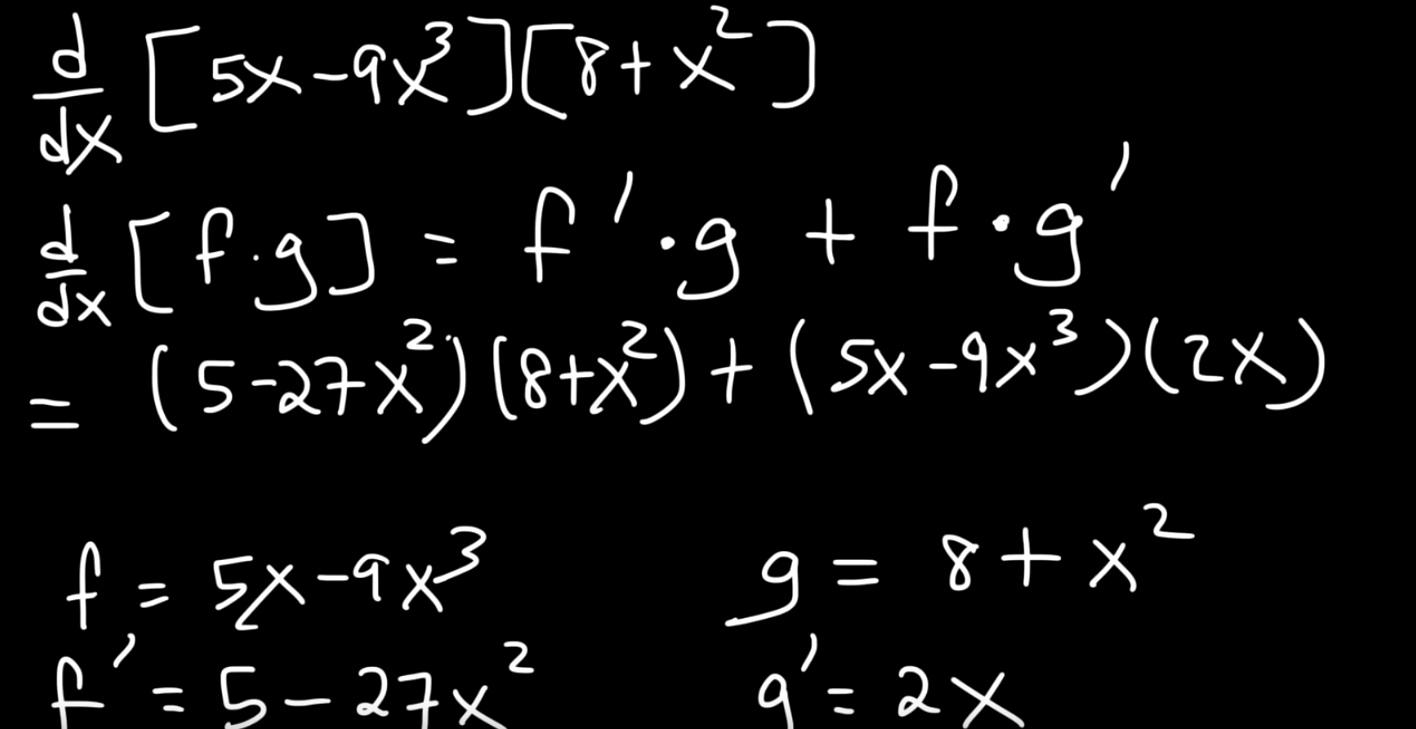 d/dx [5x-9x³][8+x²]
d/dx [f·g] = f'·g + f·g'
= (5-27x²)(8+x²)+(5x-9x³)(2x)
f = 5x-9x³ g = 8+x²
f' = 5-27x² g' = 2x